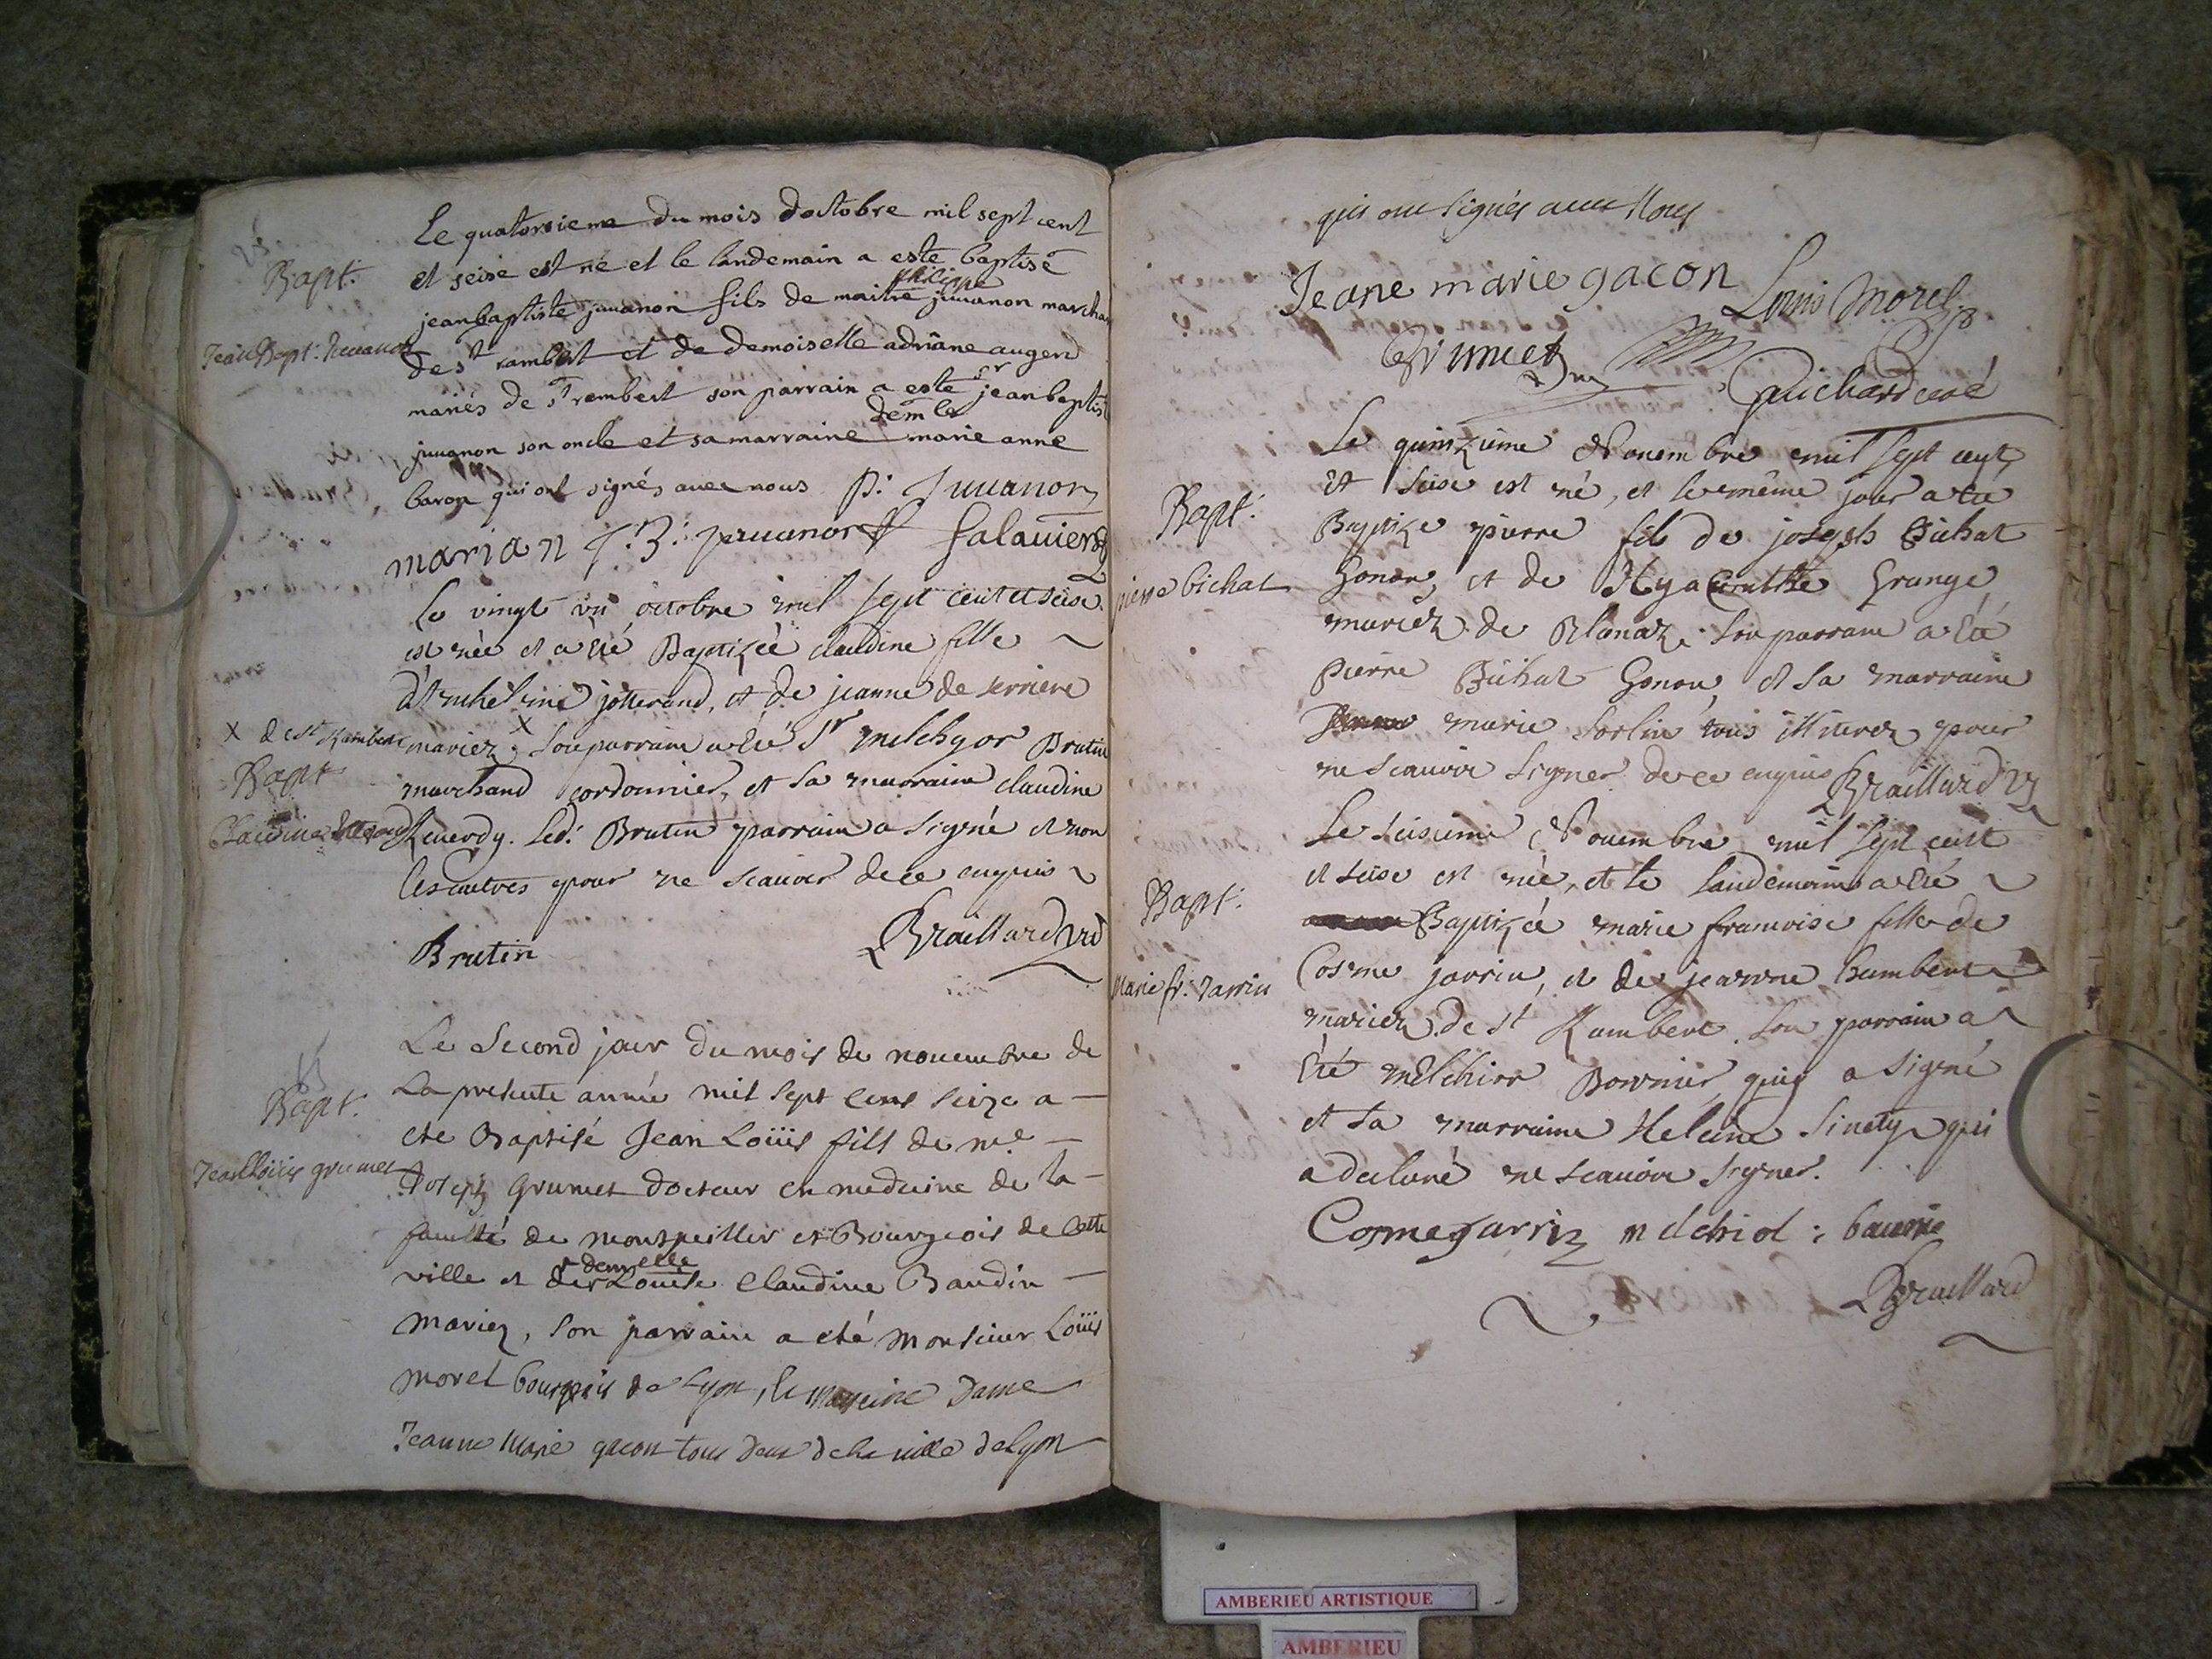 Le quatorsieme du mois doctobre mil sept cent
Bapt.
et seise est né et le landemain a este baptisé
philippe
jean baptiste juuanon fils de maitre juuanon marchan
Jean Bapt: Juuanon
de st rambert et de demoiselle adriane augerd
mariés de st rembert son parrain a este sr jean baptist
demlle
juuanon son oncle et sa marraine marie anne
baron qui ont signés auec nous P: Juuanon
marian J: B: juuanon falauier
Le vingt un octobre mil sept cent et seise
est née et a été Baptizée claudine fille
jotterand, et de jeanne de serriere
X de st Rambert mariez X Son parrain a été Sr melchyor Brutin
Bapt
marchand cordonnier, et sa marraine claudine
Claudine Jotterand
Reuerdy. Led: Brutin parrain a signé et non
les autres pour ne scauoir de ce enquis
Brutin
Braillard vic
Le Second jour du mois de nouembre de
La presente année mil sept cens seize a
Bapt.
eté Baptisé Jean Loüis fils de me
Jean Loüis grumet
Joseph Grumet docteur en medecine de la
faculté de montpellier et Bourgeois de cette
demelle
ville et de Louise Claudine Baudin
Mariez, son parrain a eté Monsieur Loüis
Morel bourgeois de Lyon, la Marreine Dame
Jeanne Marie gacon tous deux de la ville de Lyon
qui ont signés auec Nous
Jeane marie gacon Louis Morel
Grumet
Guichard curé
Le quinzieme Nouembre mil sept cent
Bapt.
et seise est né, et le même jour a été
Baptize pierre fils de joseph Bichat
pierre bichat
Gonon, et de Hyacinthe Grange
mariez de Blanaz. Son parrain a été
Pierre Bichat Gonon, et sa marraine
marie Sorlin tous illiterez pour
ne scauoir signer de ce enquis Braillard v
Le seisieme Nouembre mil sept cent
et seise est née, et le landemain a été
Bapt.
Baptizée marie francoise fille de
Marie fr. Jarrin
Cosme jarrin, et de jeanne humbert
mariez de st Rambert. Son parrain a
été melchior Bonnier, qui a signé
et sa marraine Heleine Sinety qui
a declaré ne scauoir signer.
Cosme Jarrin melchiol : baunie
Braillard
AMBERIEU ARTISTIQUE
AMBERIEU